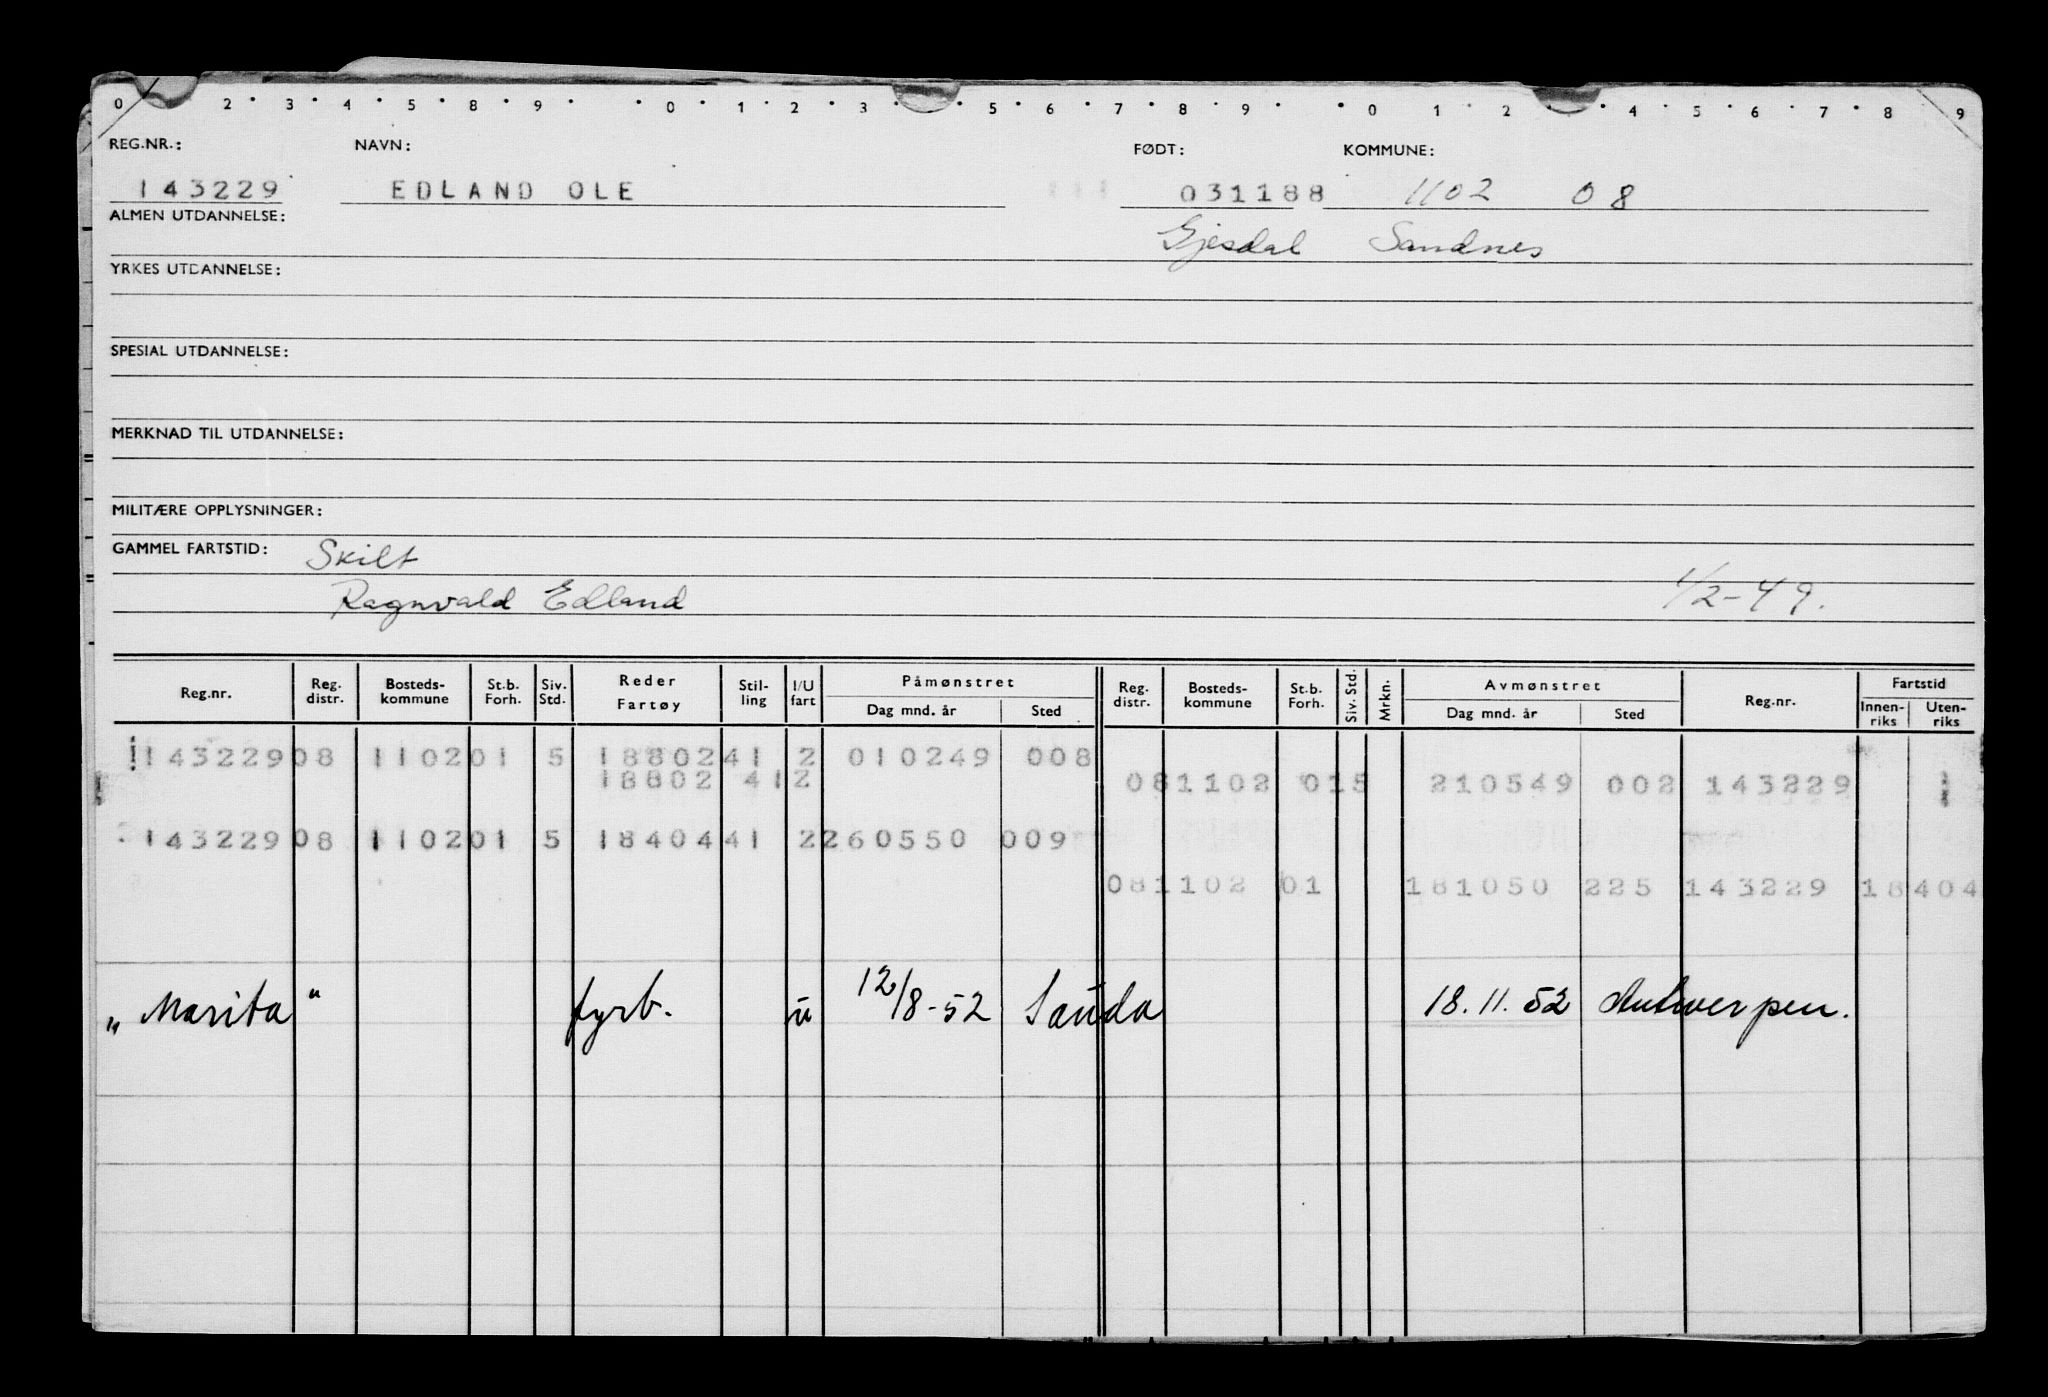 0 2 · 3 · 4 · 5 · 8 · 9 · · 0 · 1 · 2 · 3 · · 5 · 6 · 7 · 8 · 9 · · 0 · 1 · 2 · · 4 · 5 · 6 · 7 · 8 · 9
REG.NR.: NAVN: FØDT: KOMMUNE:
143229 EDLAND OLE 031188 1102 08
ALMEN UTDANNELSE: Gjesdal Sandnes
YRKES UTDANNELSE:
SPESIAL UTDANNELSE:
MERKNAD TIL UTDANNELSE:
MILITÆRE OPPLYSNINGER:
GAMMEL FARTSTID: Skilt
Ragnvald Edland 1/2-49.
Reg.nr. Reg. distr. Bosteds-kommune St.b. Forh. Siv. Std. Reder Fartøy Stil-ling I/U fart Påmønstret Dag mnd. år Sted Reg. distr. Bosteds-kommune St.b. Forh. Siv. Std. Mrkn. Avmønstret Dag mnd. år Sted Reg.nr. Fartstid Innen-riks Uten-riks
143229 08 1102 01 5 18802 41 2 010249 008
18802 41 2 08 1102 01 5 210549 002 143229
143229 08 1102 01 5 18404 41 2 260550 009
08 1102 01 181050 225 143229 18404
„Marita" fyrb. u 12/8-52 Sauda 18.11.52 Antwerpen.